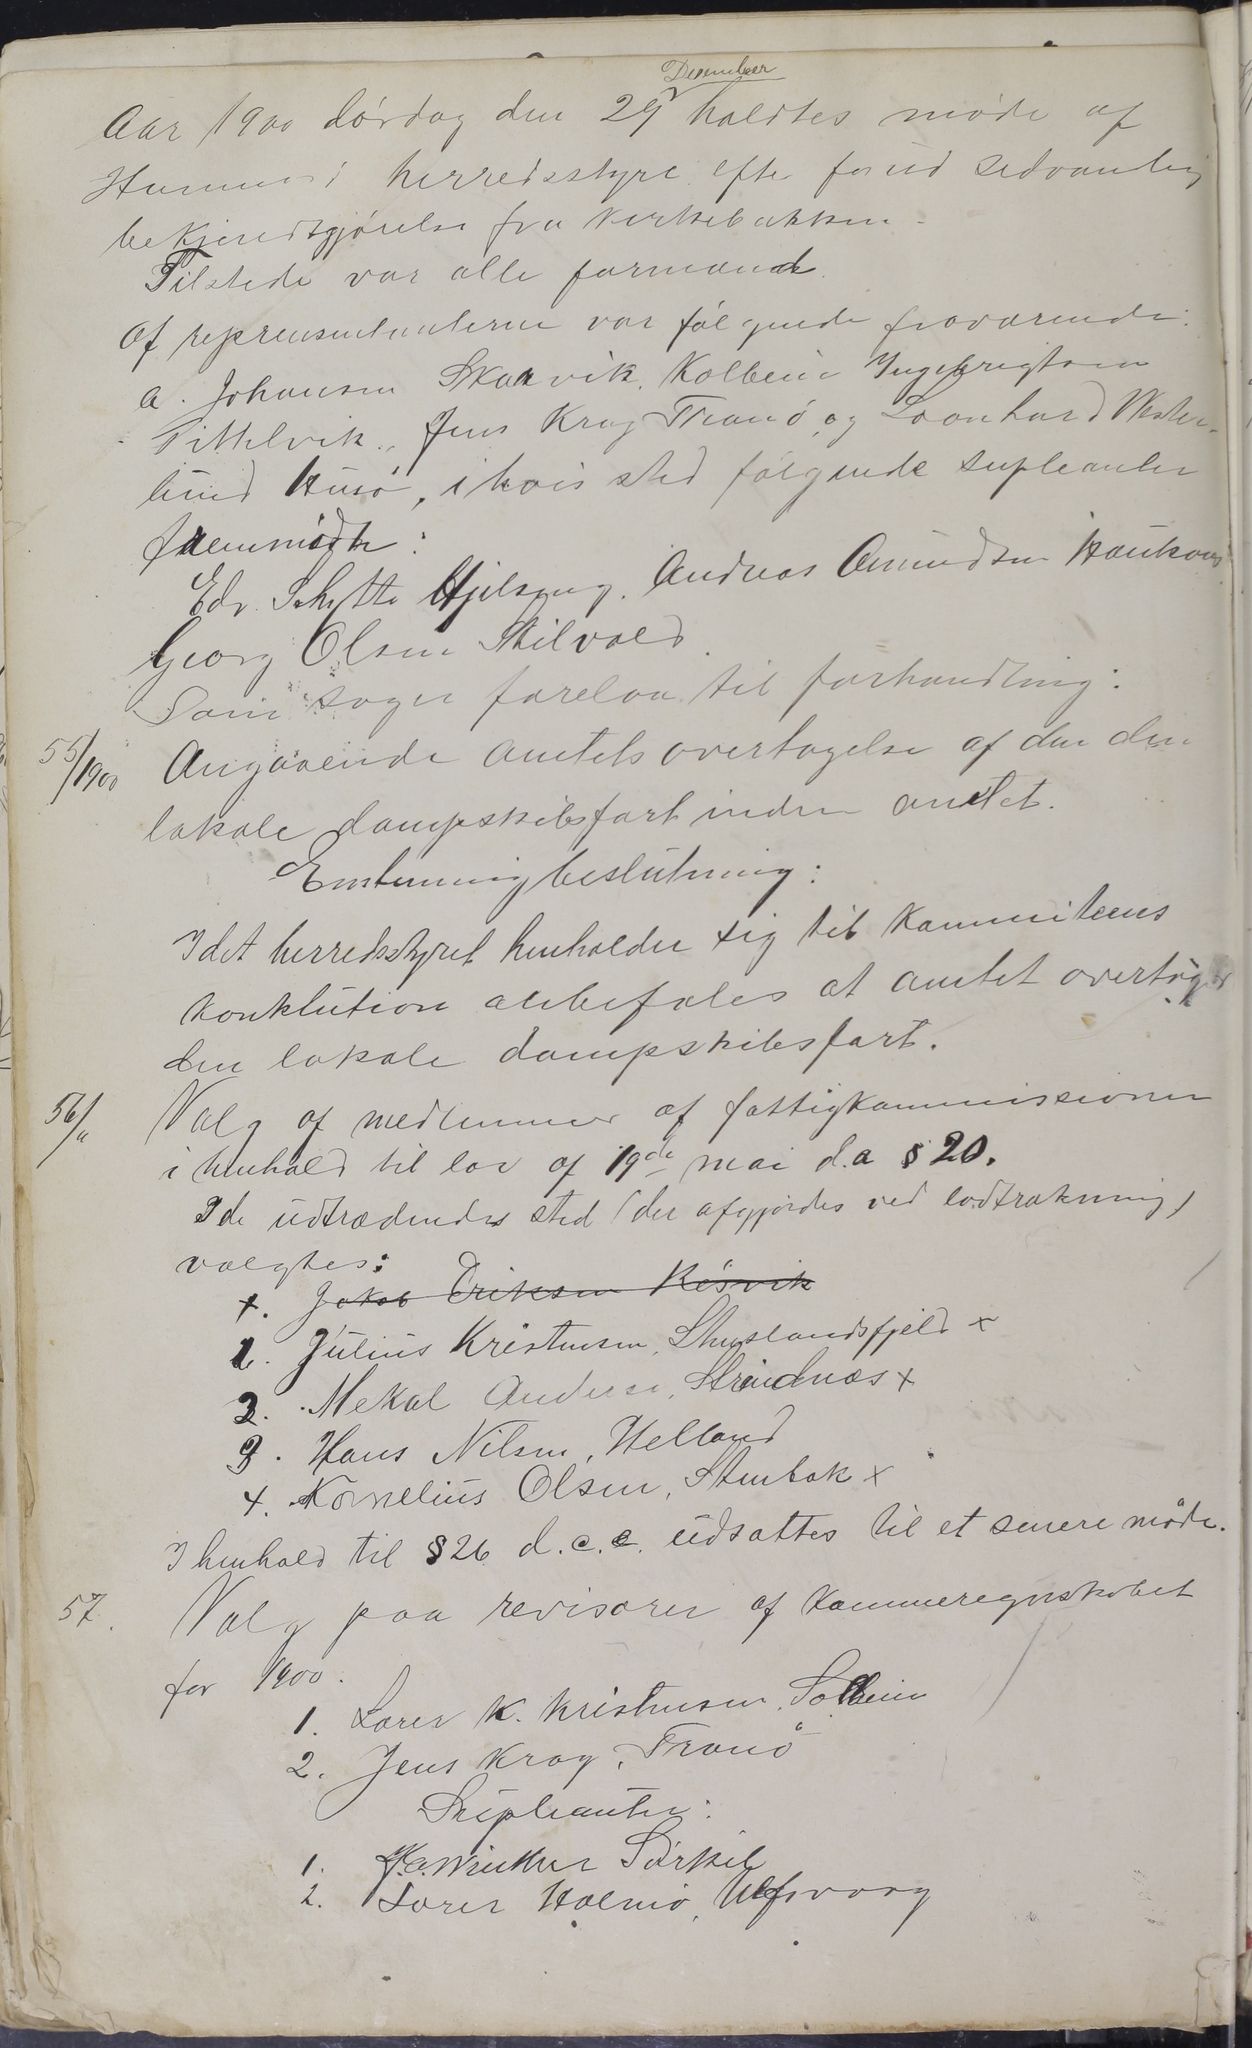 December
Aar 1900 lördag den 29 holdtes möde af
Hammerö herredsstyre efter forud sedvanlig
bekjendtgjörelse fra kirkebakken.
Tilstede var alle formænd.
Af repræsentanterne var fölgende fraværende:
A. Johansen Skarvik, Kolbein Ingebrigtsen
Tittelvik, Jens Krog Tranö, og Leonhard Wester-
lund Husö, i hvis sted fölgende supleanter
fremmödte:
Edv. Schytte Hjelseng, Andreas Amundsen Haukøs
Georg Olsen Skilvold.
Som sager forelaa til forhandling:
55/1900 Angaaende amtets overtagelse af den den
lokale dampskibsfart inden amtet.
Enstemmig beslutning:
Idet herredsstyret henholder sig til Kommiteens
konklution anbefales at amtet overtager
den lokale dampskibsfart.
56/" Valg af medlemmer af fattigkommissionen
i henhold til lov af 19de mai d.a § 20.
I de udtrædendes sted (der afgjordes ved lodtrækning)
valgtes:
1. Jakob Eriksen Rösvik
1. Julius Kristensen, Stenslandsfjeld x
2. Mekal Andersen, Strindnæs x
3. Hans Nilsen, Helland
4. Kornelius Olsen, Stenbak x
I henhold til § 26 d.c.c. udsattes til et senere möde.
57. Valg paa revisorer af kommuneregnskabet
for 1900.
1. Lorer K. Kristensen, Solheim
2. Jens Krog, Tranö
Supleanter:
1. Sörkil
2. Lorer Holmö, Ulfsvaag